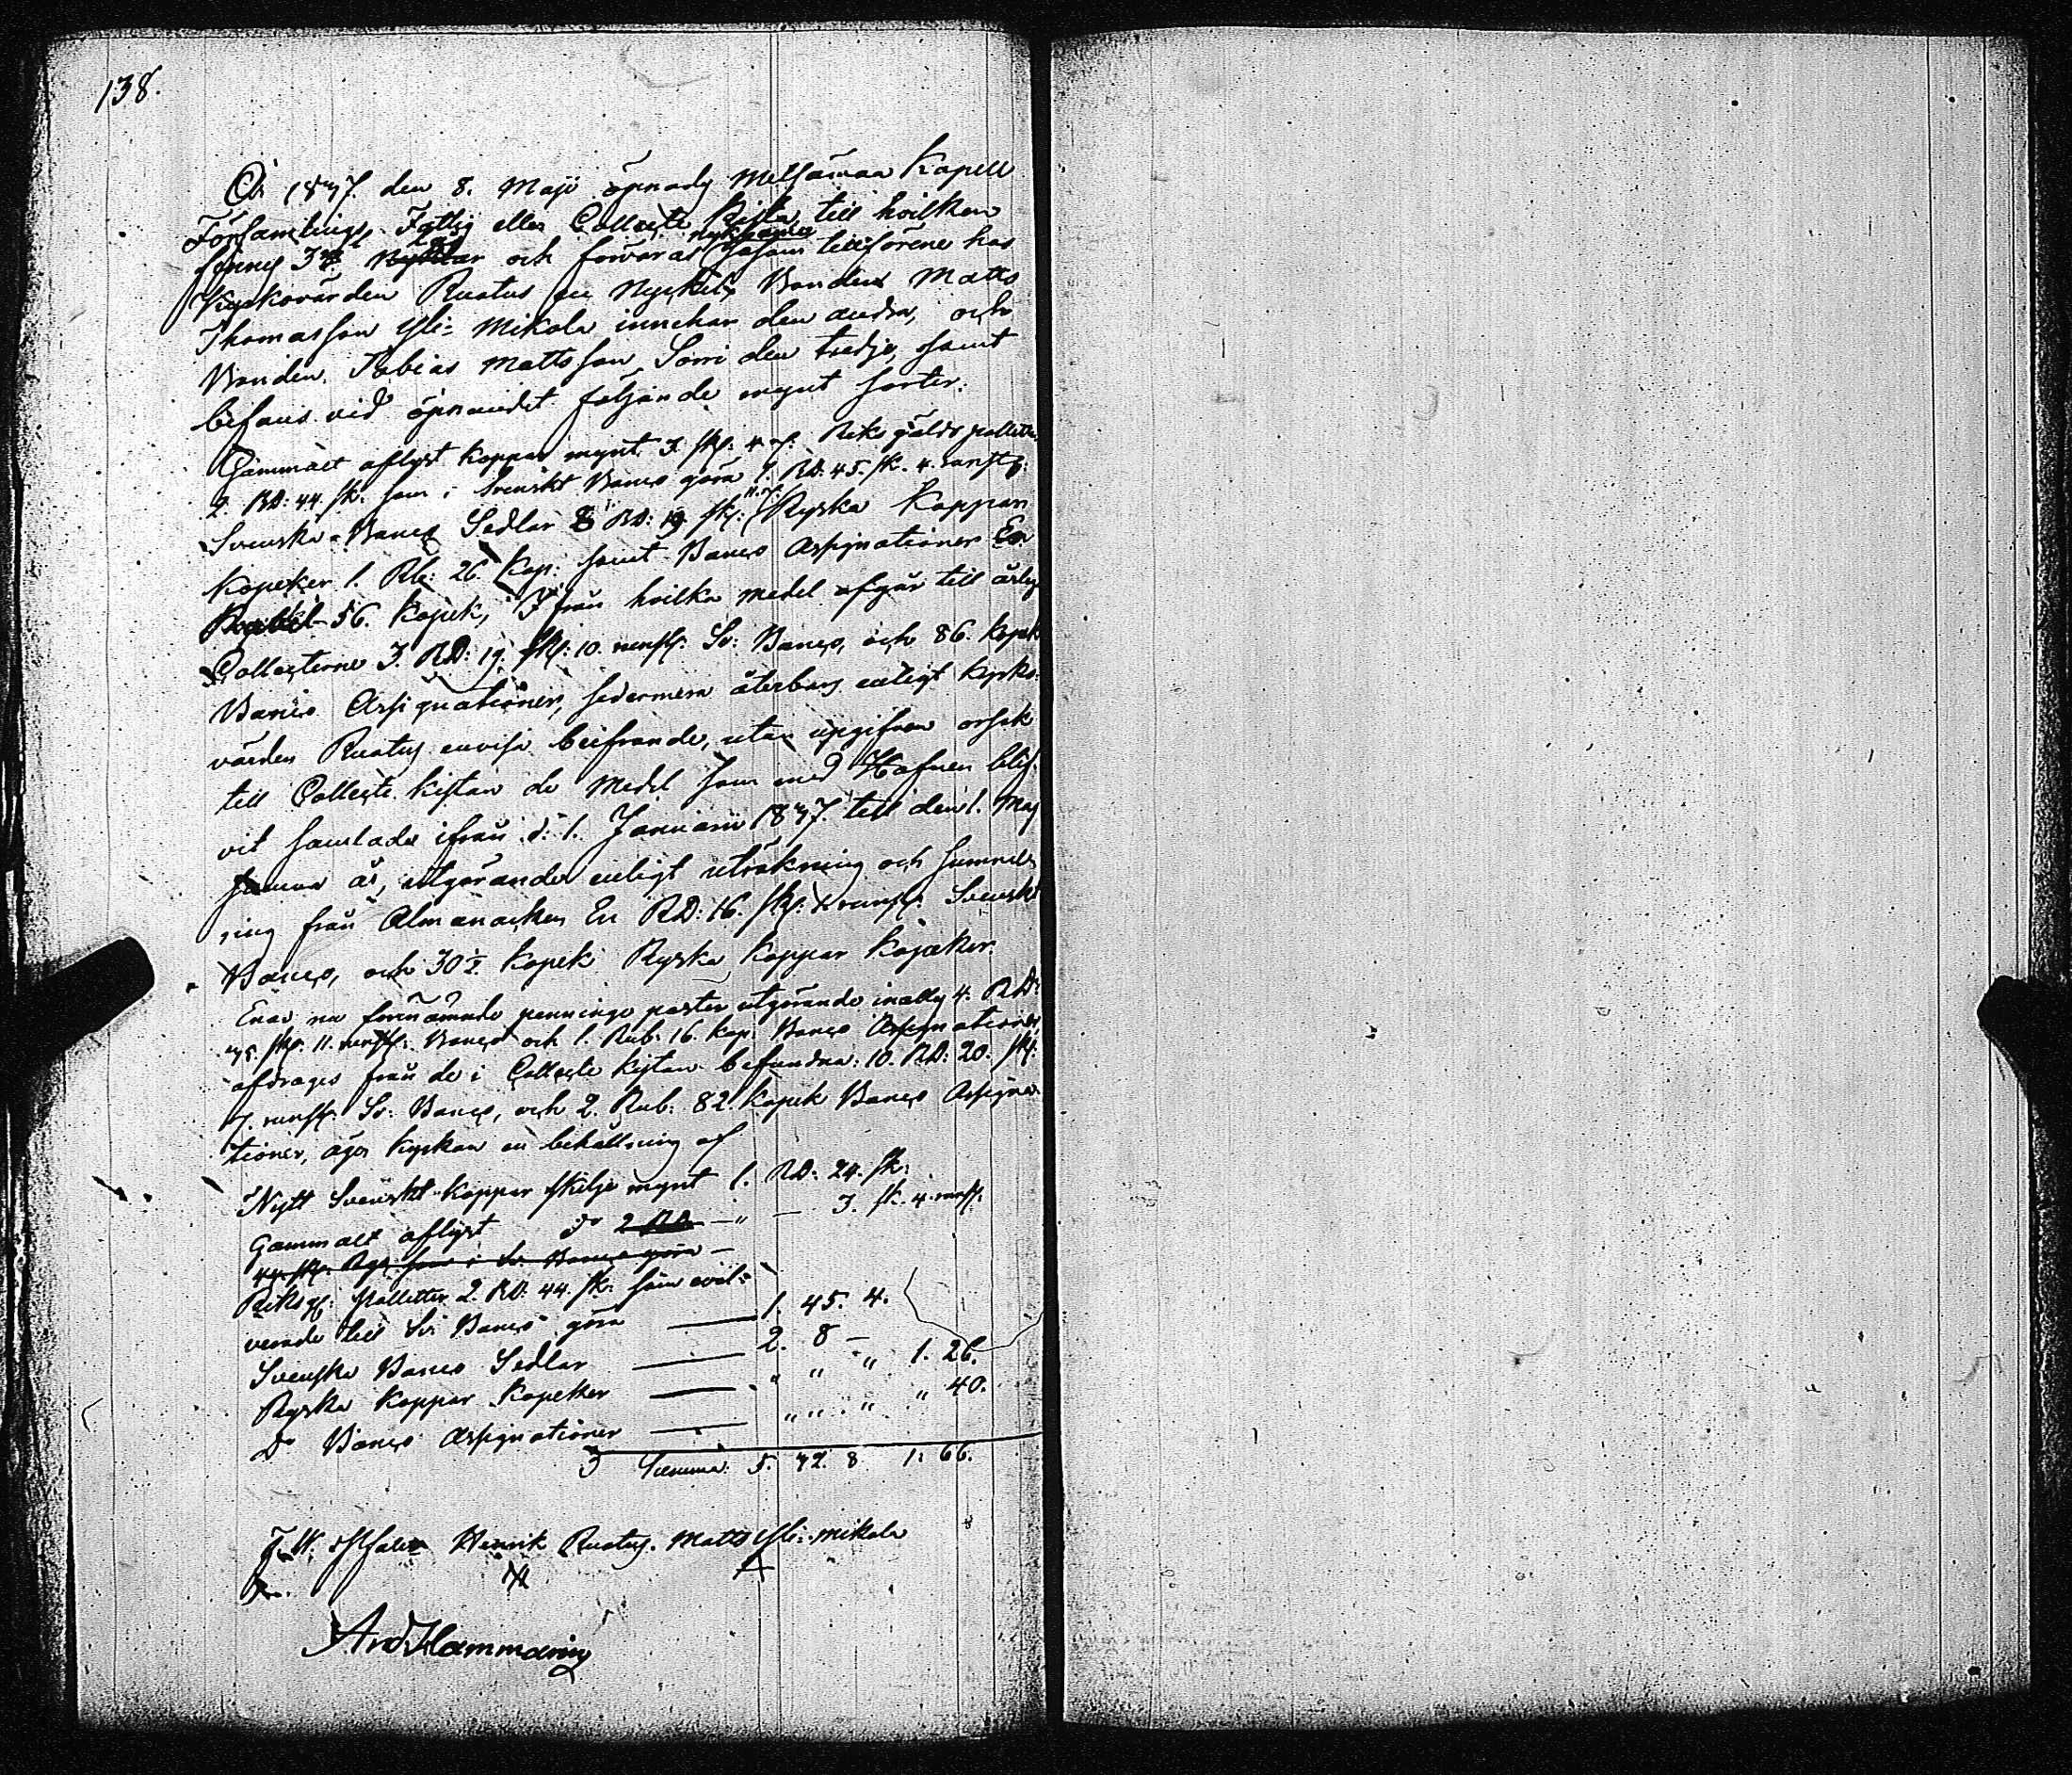 138.
År 1837. den 8. Maji öpnades Messåmaa Kapell
Församlings Fattig eller Collecte Kista, till hvilken
finnes 3ne och förvaras såsom tillförene hos
Kyrkovärden Ruotus en Nyckel, Bonden Matts
Thomasson Yli-Mikola innehar den andra, och
Bonden Tobias Mattsson Sorri den tredje, samt
befans vid öpnandet följande mynt sorter:
Gammalt aflyst koppar mynt 3. sk: 4 r. Riks gälds polletter
2. RD: 44. sk. som i Svenskt Banco göra 1. RD: 45. sk. 4. runst:
Svenska Banco Sedlar RD: 19 sk: Ryska Koppar
kopeker 1. Rb: 26. Kop: samt Banco Assignationer En
Rubel 56. Kopek, Ifrån hvilka medel afgår till
Collecterne 3. RD: 19. sk: 10. runst. Sv: Banco, och 86. kopek
Banco Assignationer, sedermera återbars enligt kyrko-
värden Ruotus envisa beifrande, utan upgifven orsak
till Collecte kistan de Medel som med Håfven blif-
vit samlade ifrån d: 1. Januarii 1837. till den 1. Maj
samma år, utgörande enligt uträkning och summe-
ring från Almanackan En RD: 16. sk: runst. Svenskt
Banco, och 30½ kopek Ryska Koppar Kopeker.
Enär nu förenämnde penninge poster utgörande inalles 4. RD:
sk: 11. runst: Banco och 1. Rub: 16. kop: Banco Assignationer,
afdrages från de i Collecte kistan befundna: 10. RD: 20. sk:
7. runst. Sv: Banco, och 2. Rub: 82. kopek Banco Assigna-
tioner, äger kyrkan en behållning af
Nytt Svenskt koppar skilje mynt 1. RD: 24. sk:
Gammalt aflyst do 2 RD. — " — 3. sk. 4. runst.
44. sk: Rgs. som i Sv. Banco göra —
Riksg: Polletter 2. RD. 44. sk: som
verade till Sv: Banco göra — 1. 45. 4.
Svenska Banco Sedlar — 2. 8 —
Ryska Koppar Kopeker — " " " 1. 26.
Do Banco Assignationer — " " " " 40.
Summa: 5. 32. 8 1. 66.
Henrik Ruotus. Matts Yli-Mikola
And Hammaring